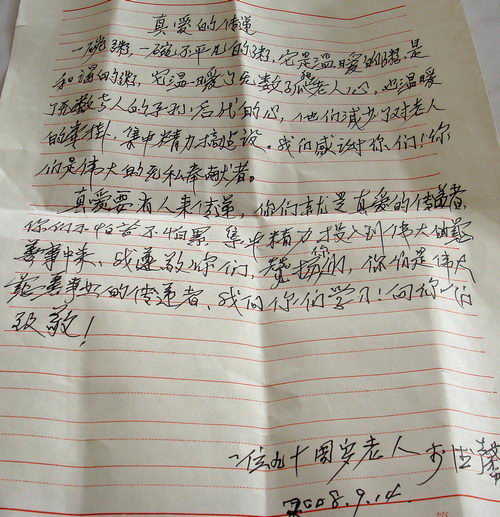 真爱的传递
一碗粥，一碗不平凡的粥，它是温暖的粥，是
和谐的粥，它温暖了无数孤老人心，也温暖
了无数老人的子孙后代的心，他们减少了对老人
的牵挂，集中精力搞建设。我们感谢你们！你
们是伟大的无私奉献者。
真爱要有人来传递，你们就是真爱的传递者，
你们不怕苦不怕累，集中精力投入到伟大的慈
善事中来，我尊敬你们，赞扬你们，你们是伟大
慈善事业的传递者，我向你们学习！向你们
致敬！
一位九十周岁老人
2008.9.14.